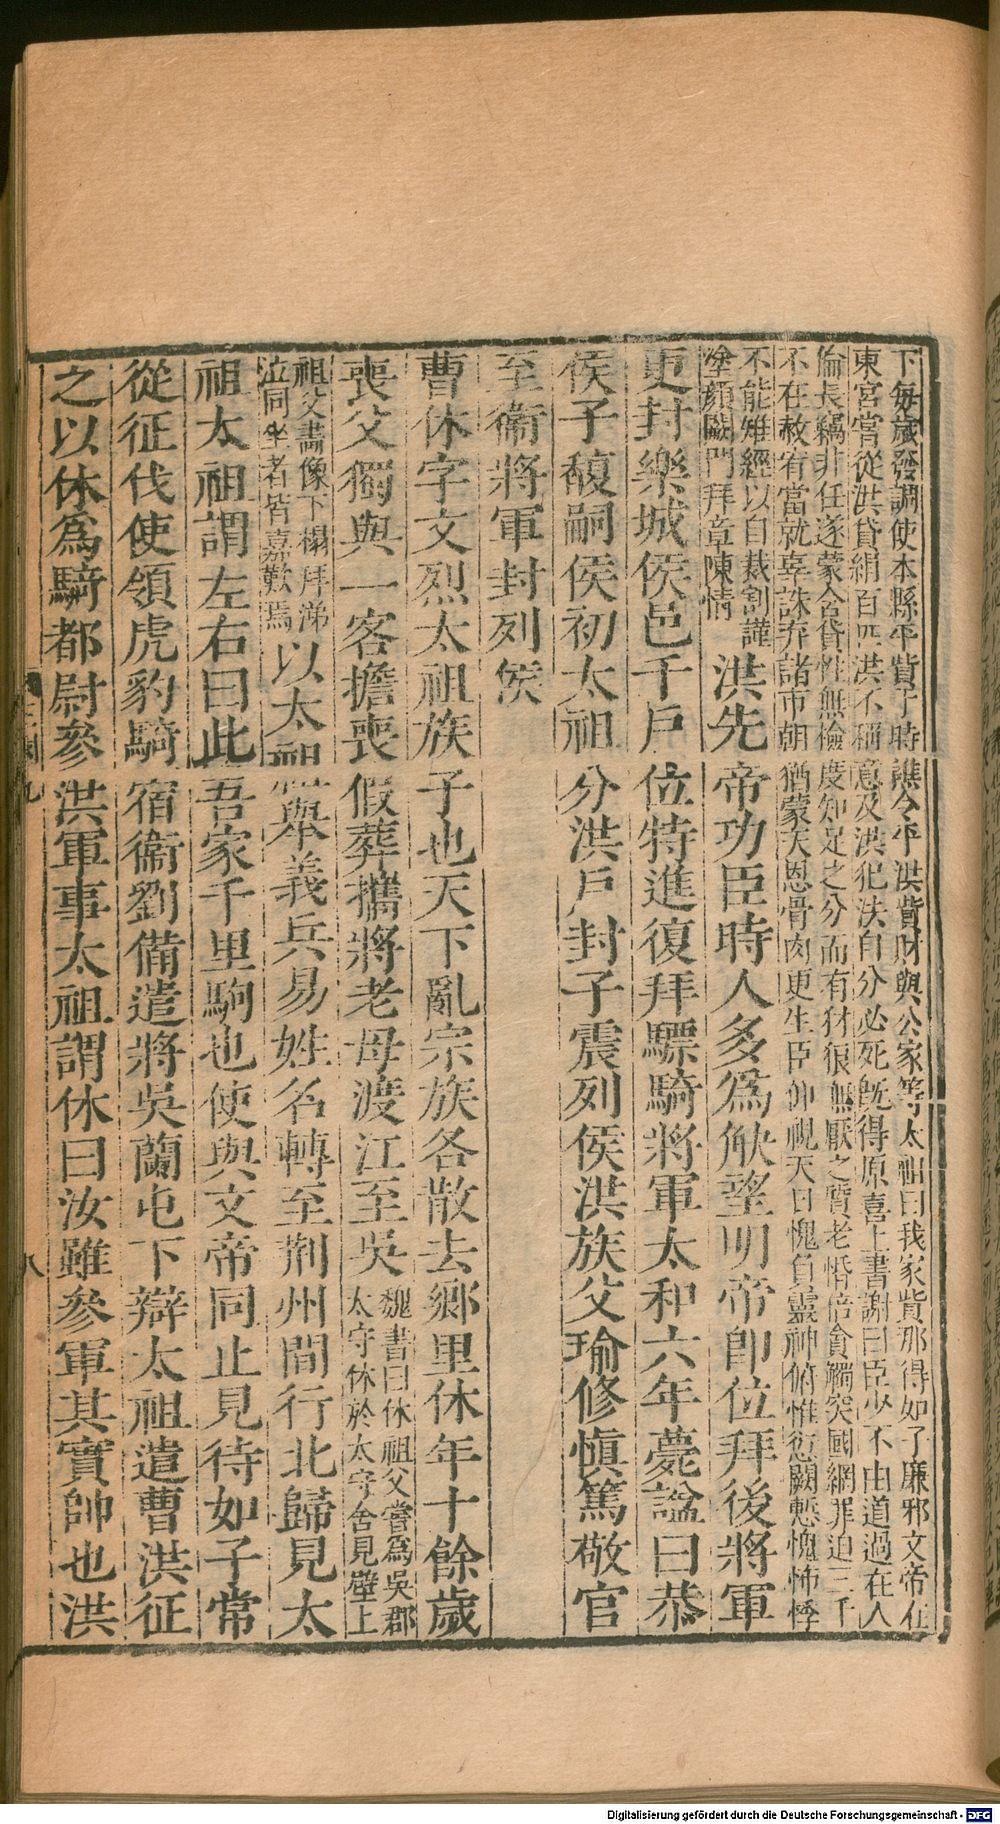 下每歲發調使本縣平貲于時譙令平洪貲財與公家等太祖曰我家貲那得如子廉邪文帝在
東宮嘗從洪貸絹百匹洪不稱意及洪犯法自分必死既得原喜上書謝曰臣少不由道過在人
倫長竊非任遂蒙含貸性無檢度知足之分而有豺狼無厭之質老惛倍貪觸突國網罪迫三千
不在赦宥當就辜誅弃諸市朝猶蒙天恩骨肉更生臣仰視天日愧負靈神俯惟愆闕慙愧怖悸
不能雉經以自裁割謹
塗顏闕門拜章陳情
洪先帝功臣時人多爲觖望明帝卽位拜後將軍
更封樂城侯邑千戶位特進復拜驃騎將軍太和六年薨諡曰恭
侯子馥嗣侯初太祖分洪戶封子震列侯洪族父瑜修愼篤敬官
至衞將軍封列侯
曹休字文烈太祖族子也天下亂宗族各散去鄉里休年十餘歲
喪父獨與一客擔喪假葬攜將老母渡江至吳
魏書曰休祖父嘗爲吳郡
太守休於太守舍見壁上
祖父畫像下榻拜涕
泣同坐者皆嘉歎焉
以太祖舉義兵易姓名轉至荆州間行北歸見太
祖太祖謂左右曰此吾家千里駒也使與文帝同止見待如子常
從征伐使領虎豹騎宿衞劉備遣將吳蘭屯下辯太祖遣曹洪征
之以休爲騎都尉參洪軍事太祖謂休曰汝雖參軍其實帥也洪
八
Digitalisierung gefördert durch die Deutsche Forschungsgemeinschaft - DFG